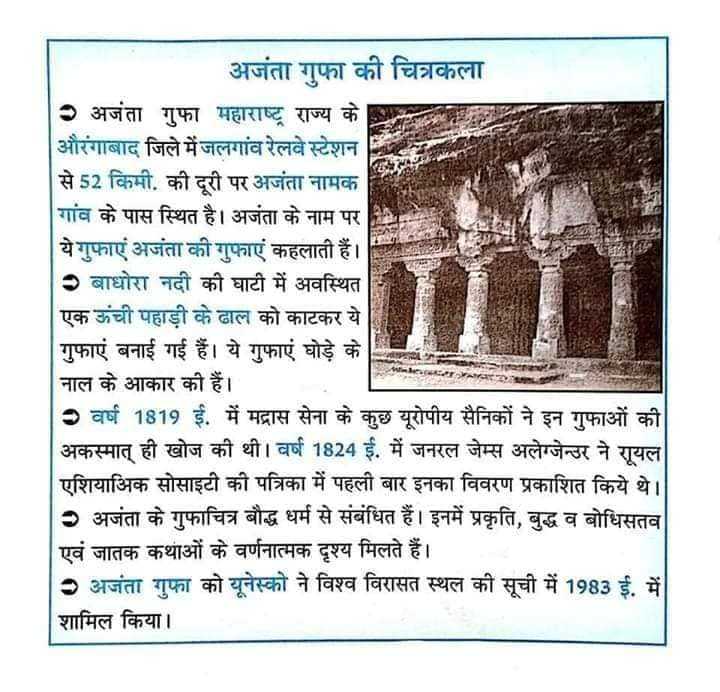 अजंता गुफा की चित्रकला
➲ अजंता गुफा महाराष्ट्र राज्य के
औरंगाबाद जिले में जलगांव रेलवे स्टेशन
से 52 किमी. की दूरी पर अजंता नामक
गांव के पास स्थित है। अजंता के नाम पर
ये गुफाएं अजंता की गुफाएं कहलाती हैं।
➲ बाधोरा नदी की घाटी में अवस्थित
एक ऊंची पहाड़ी के ढाल को काटकर ये
गुफाएं बनाई गई हैं। ये गुफाएं घोड़े के
नाल के आकार की हैं।
➲ वर्ष 1819 ई. में मद्रास सेना के कुछ यूरोपीय सैनिकों ने इन गुफाओं की
अकस्मात् ही खोज की थी। वर्ष 1824 ई. में जनरल जेम्स अलेग्जेन्डर ने रायल
एशियाअिक सोसाइटी की पत्रिका में पहली बार इनका विवरण प्रकाशित किये थे।
➲ अजंता के गुफाचित्र बौद्ध धर्म से संबंधित हैं। इनमें प्रकृति, बुद्ध व बोधिसतव
एवं जातक कथाओं के वर्णनात्मक दृश्य मिलते हैं।
➲ अजंता गुफा को यूनेस्को ने विश्व विरासत स्थल की सूची में 1983 ई. में
शामिल किया।